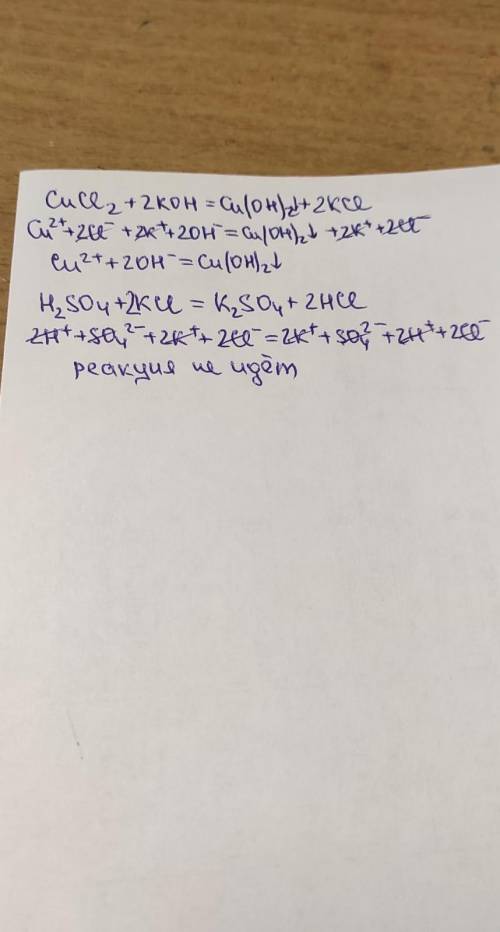 CuCl₂ + 2KOH = Cu(OH)₂↓ + 2KCl
Cu²⁺ + 2Cl⁻ + 2K⁺ + 2OH⁻ = Cu(OH)₂↓ + 2K⁺ + 2Cl⁻
Cu²⁺ + 2OH⁻ = Cu(OH)₂↓
H₂SO₄ + 2KCl = K₂SO₄ + 2HCl
2H⁺ + SO₄²⁻ + 2K⁺ + 2Cl⁻ = 2K⁺ + SO₄²⁻ + 2H⁺ + 2Cl⁻
реакция не идёт